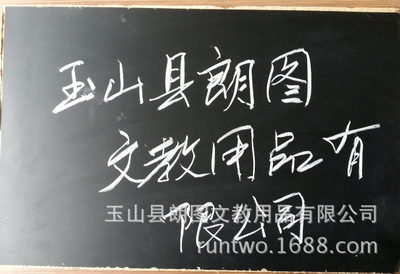 玉山县朗图
文教用品有
玉山县朗图文教用品有限公司
限公司
runtwo.1688.com